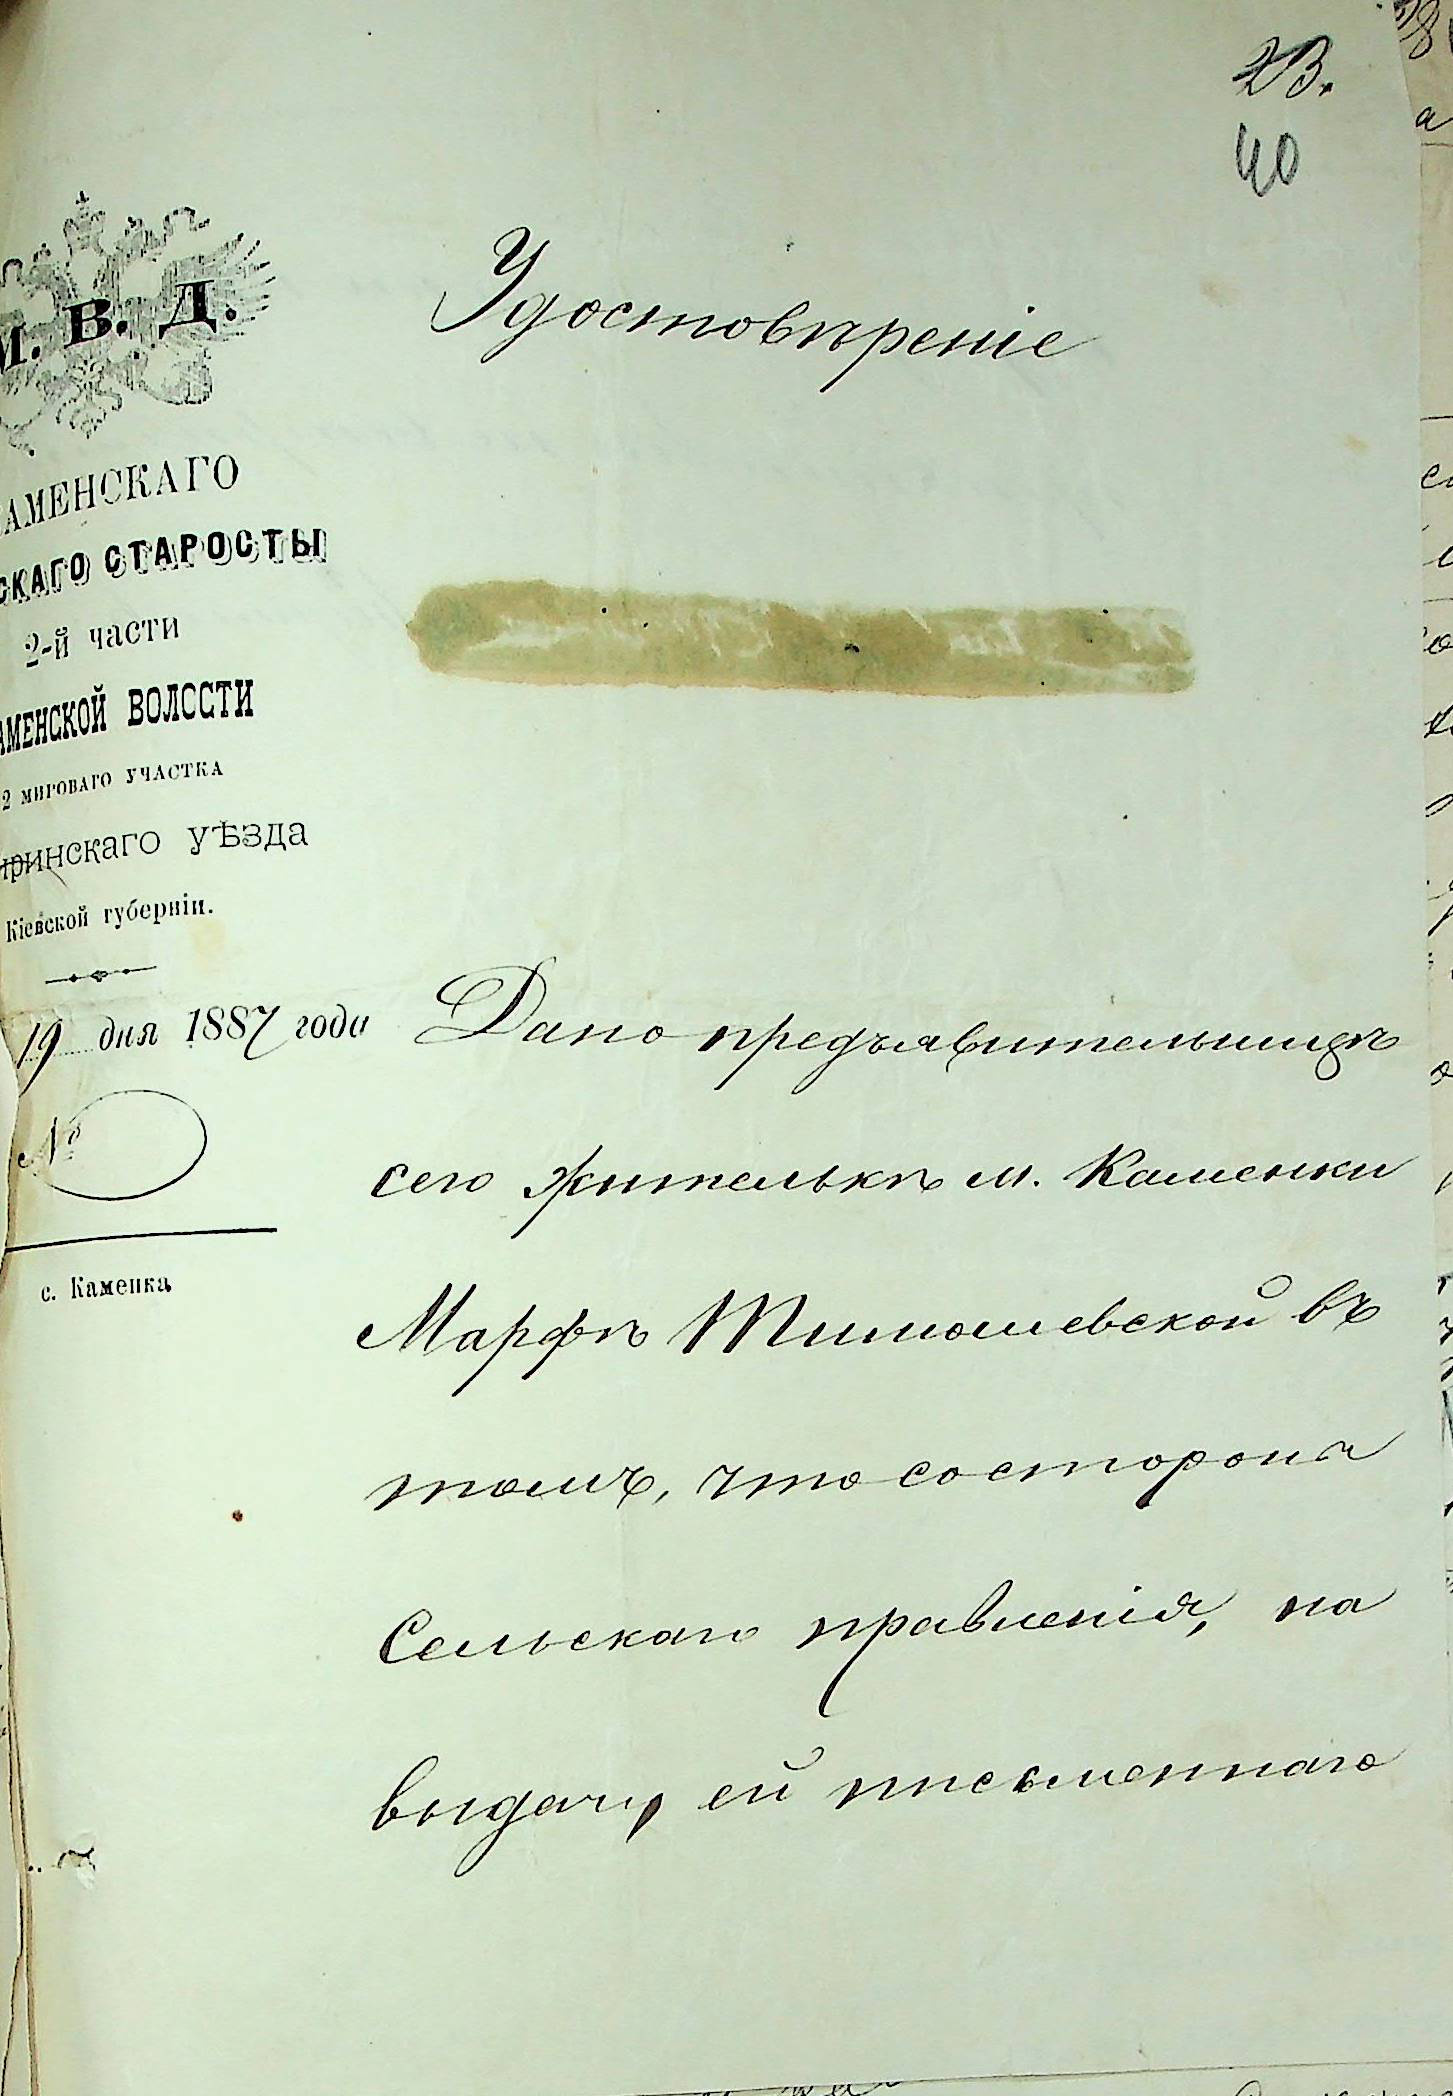 23.
40
М. В. Д.
АМЕНСКАГО
СКАГО СТАРОСТЫ
2-й части
АМЕНСКОЙ ВОЛОСТИ
2 МИРОВАГО УЧАСТКА
иринскаго уѣзда
Кіевской губерніи.
19 дня 1887 года
№
с. Каменка
Удостовѣреніе
Дано предъявительницѣ
сего жителькѣ м. Каменки
Марфѣ Тимошевской въ
томъ, что со стороны
Сельскаго правленія, на
выдачу ей письменнаго